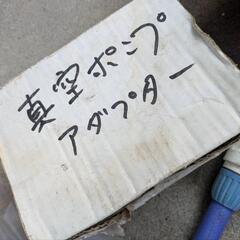 真空ポンプ
アダプター